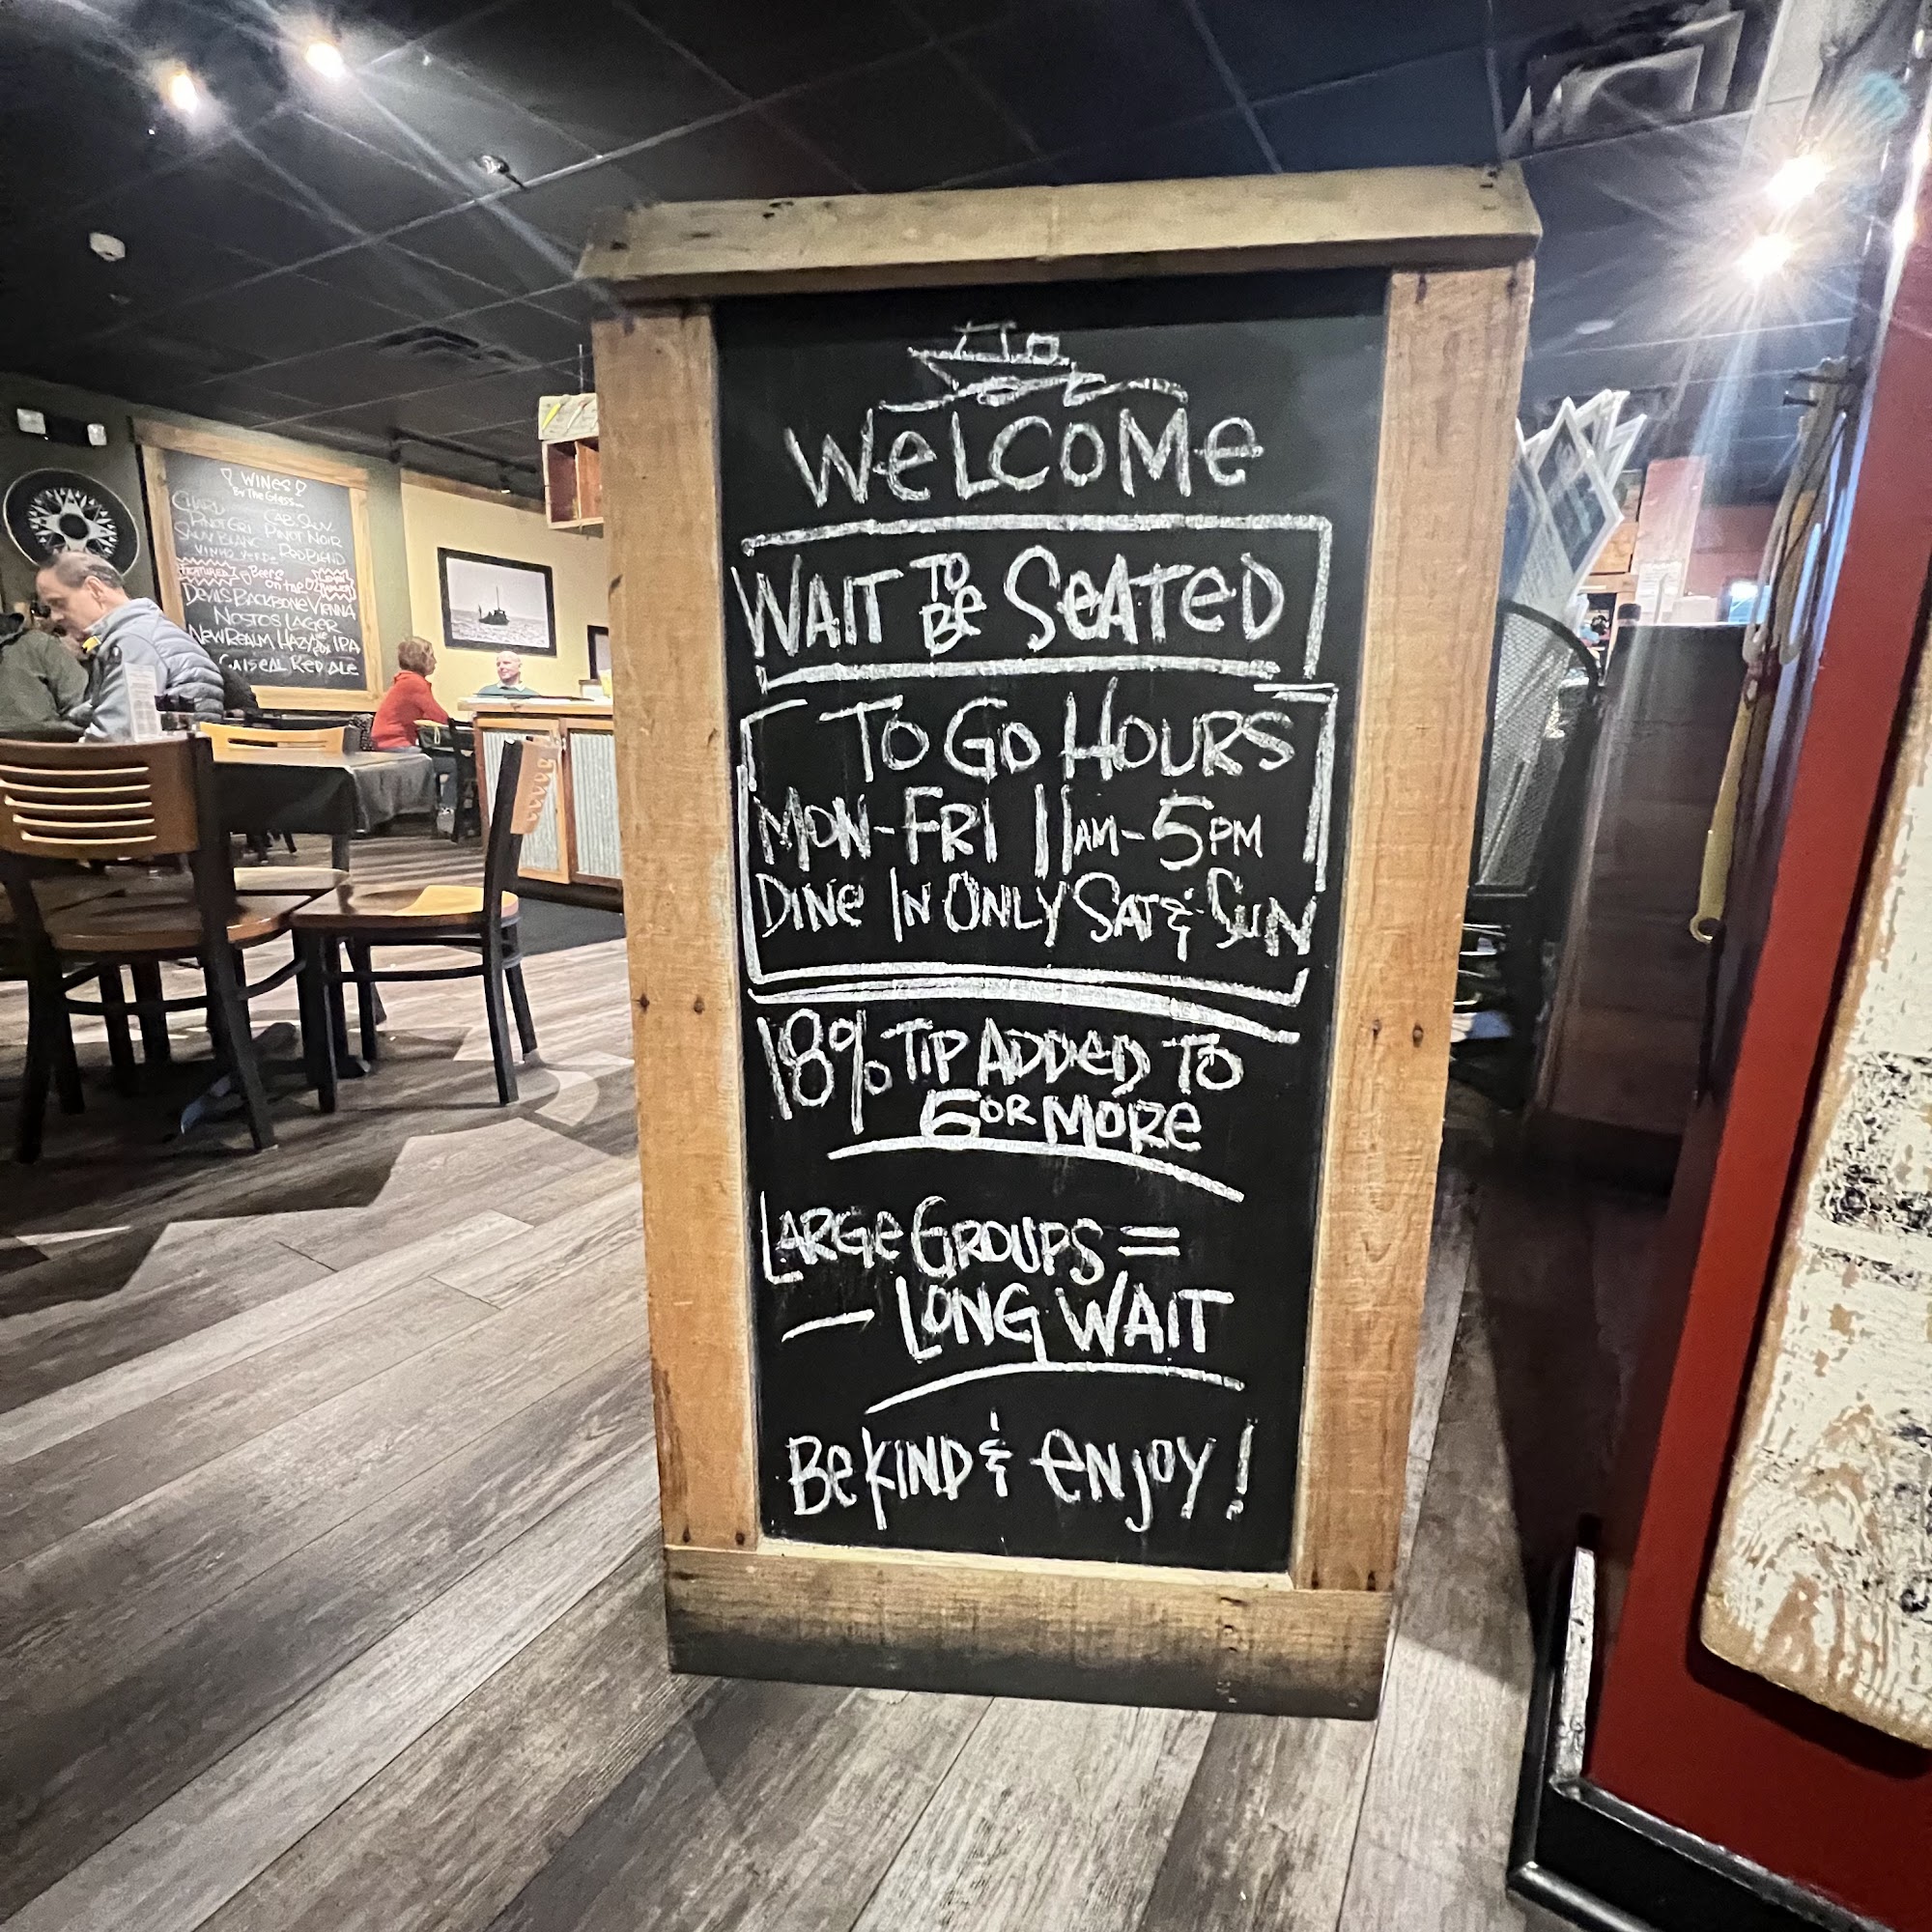 WELCOME
WAIT TO BE SEATED
TO GO HOURS
MON-FRI 11AM-5PM
DINE IN ONLY SAT & SUN
18% TIP ADDED TO
6 OR MORE
LARGE GROUPS =
— LONG WAIT
BE KIND & ENJOY!
WINES
By The Glass...
CHARD CAB SAUV
PINOT GRI PINOT NOIR
SAUV BLANC RED BLEND
VINHO VERDE
FEATURED Beers
DEVILS BACKBONE VIENNA
NOSTOS LAGER
NEW REALM HAZY IPA
RED ALE